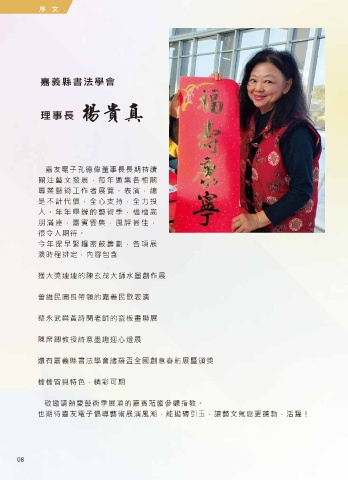 序 文
嘉義縣書法學會
理事長 楊貴真
福壽康寧
嘉友電子孔德偉董事長長期持續
關注藝文發展，每年邀集各相關
專業藝術工作者展覽、表演，總
是不計代價，全心支持，全力投
入，年年舉辦的藝術季，檔檔高
朋滿座，嘉賓雲集，風評甚佳，
很令人期待。
今年提早緊鑼密鼓籌劃，各項展
演時程排定，內容包含
獲大獎連連的陳玄茂大師水墨創作展
曾維民團長帶領的嘉義民歌表演
蔡永武與黃詩閔老師的瓷板畫聯展
陳席卿教授詩意墨趣迎心燈展
還有嘉義縣書法學會諸羅盃全國創意春聯展暨頒獎
檔檔皆具特色，精彩可期
敬邀請熱愛藝術季展演的嘉賓蒞臨參觀指教。
也期待嘉友電子倡導藝術展演風潮，能拋磚引玉，讓藝文氣息更蓬勃，活躍！
08